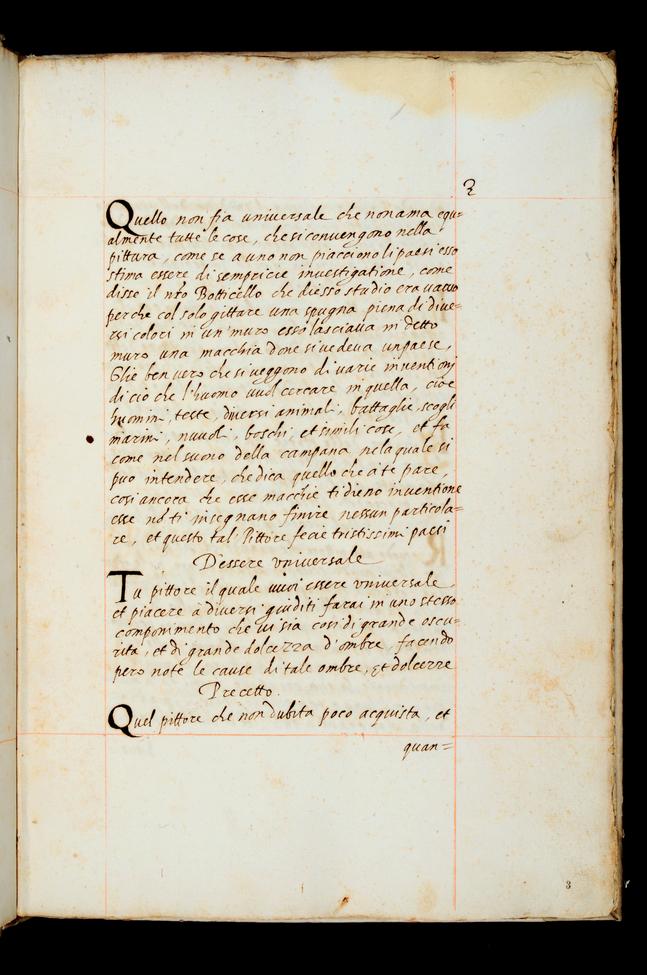 3
Quello non fia universale che non ama equ=
almente tutte le cose, che si convengono nella
pittura, come se a uno non piacciono li paesi esso
stima essere di sempricie investigatione, come
disse il nro Botticello che di esso studio era vano
perche col solo gittare una spugna piena di dive=
rsi colori in un' muro esso lasciava in detto
muro una macchia done si vedeva un paese,
Glie ben vero che si veggono di varie inventioni
di ciò che l'huomo vuol cercare in quella, cioe
huomini, teste, diversi animali, battaglie, scogli
marini, nuvoli, boschi, et simili cose, et fa
come nel suono della campana nela quale si
puo intendere, che dica quello che a te pare,
cosi ancora che esse macchie ti dieno inventione
esse nō ti insegnano finire nessun particola=
re, et questo tal Pittore fecie tristissimi paesi
D'essere vniversale
Tu pittore il quale vuoi essere vniversale,
et piacere à diversi giuditi farai in uno stesso
componimento che vi sia cosi di grande oscu=
rità, et di grande dolcezza d'ombre, facendo
pero note le cause di tale ombre, et dolcezze
Precetto.
Quel pittore che non dubita poco acquista, et
quan=
3